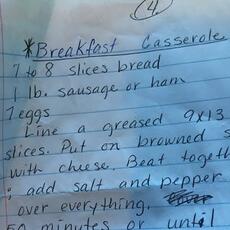 4.
*Breakfast Casserole
7 to 8 slices bread
1 lb. sausage or ham
7 eggs
Line a greased 9x13
slices. Put on browned s
with cheese. Beat togeth
; add salt and pepper
over everything.
50 minutes or until